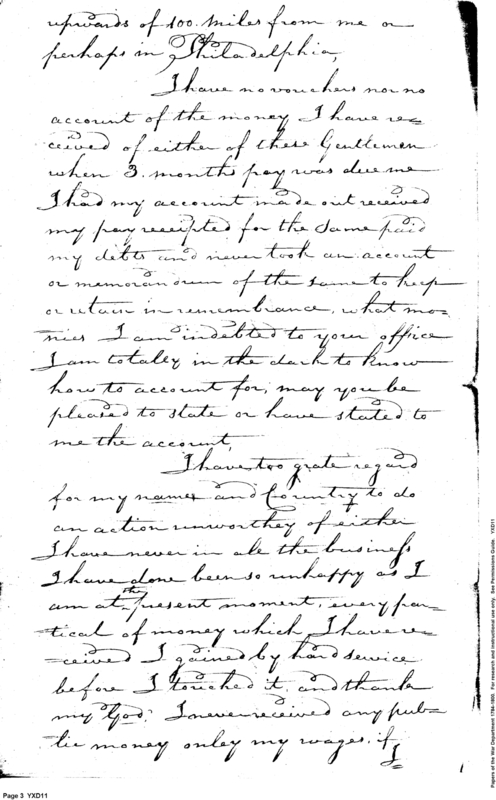 upwards of 100 miles from me or
perhaps in Philadelphia,
I have no vouchers nor no
account of the money I have re=
ceived of either of these Gentlemen
when 3. months pay was due me
I had my account made out received
my pay receipted for the same paid
my debts and never took an account
or memorandum of the same to keep
or retain in remembrance, what mo=
nies I am indebted to your office
I am totaley in the dark to know
how to account for, may you be
pleased to state or have stated to
me the account,
I have too grate regard
for my names and Country to do
an action unworthey of either
I have never in all the business
I have done been so unhappy as I
am at the present moment, every par=
tical of money which I have re=
=ceived I gained by hard service
before I touched it, and thank
my God. I never received any pub=
lic money onley my wages, if
I
Page 3 YXD11
Papers of the War Department 1784-1800. For research and instructional use only. See Permissions Guide. YXD11